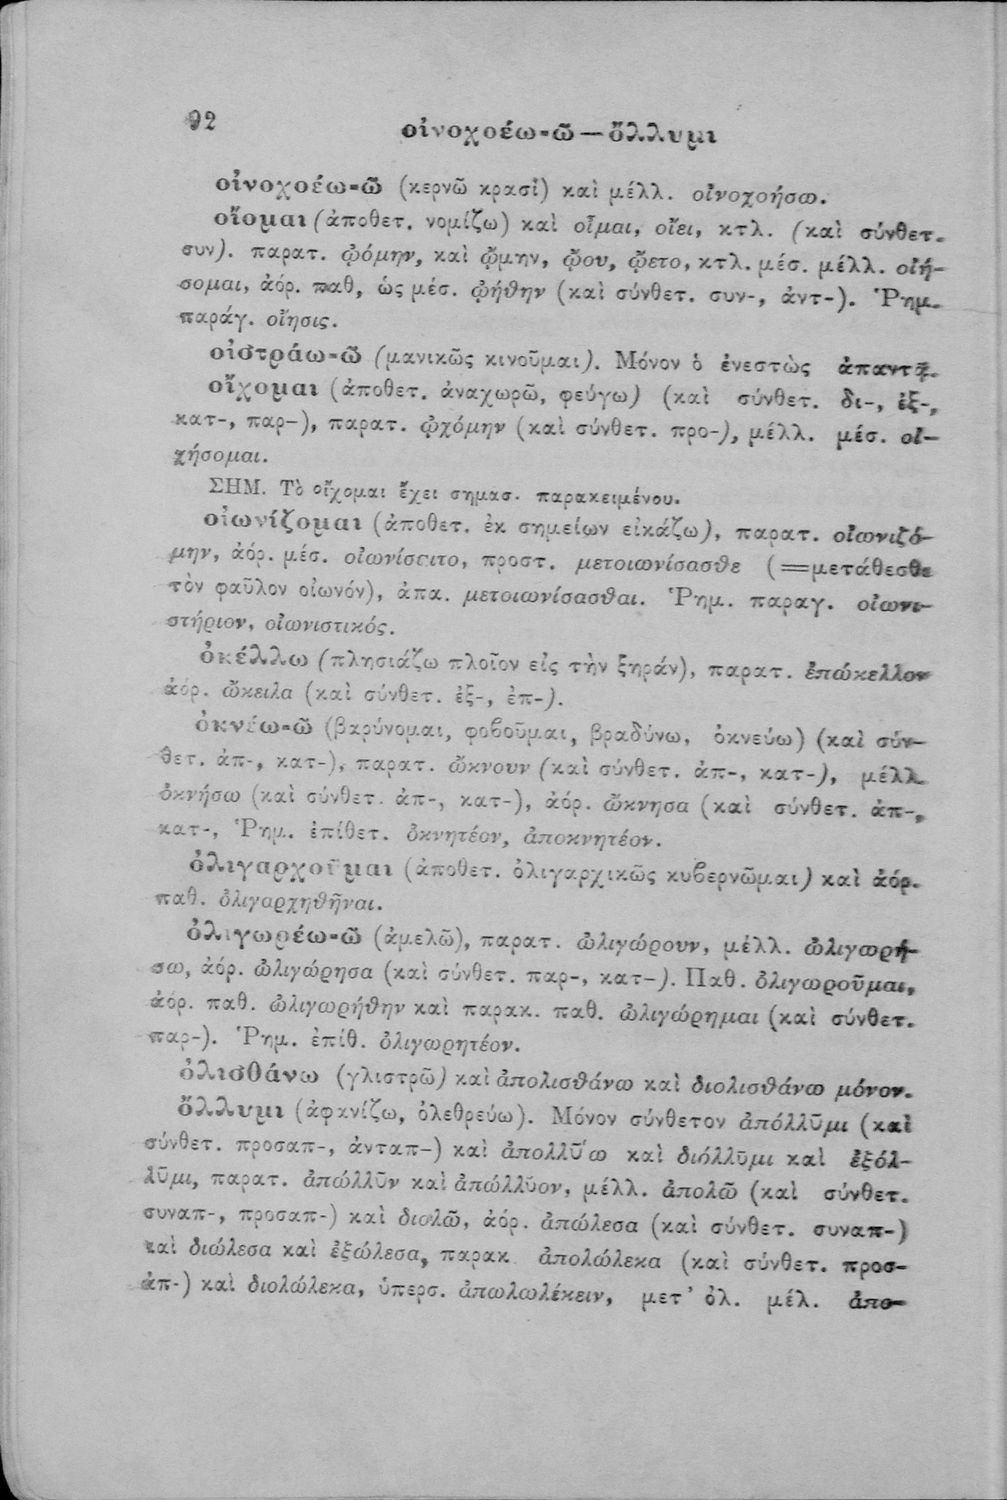 92
οἰνοχοέω-ῶ — ὄλλυμι
οἰνοχοέω-ῶ (κερνῶ κρασί) καὶ μέλλ. οἰνοχοήσω.
οἴομαι (ἀποθετ. νομίζω) καὶ οἶμαι, οἴει, κτλ. (καὶ σύνθετ.
συν). παρατ. ᾠόμην, καὶ ᾤμην, ᾤου, ᾤετο, κτλ. μέσ. μέλλ. οἰή-
σομαι, ἀόρ. παθ, ὡς μέσ. ᾠήθην (καὶ σύνθετ. συν-, ἀντ-). Ῥημ.
παράγ. οἴησις.
οἰστράω-ῶ (μανικῶς κινοῦμαι). Μόνον ὁ ἐνεστὼς ἀπαντᾷ.
οἴχομαι (ἀποθετ. ἀναχωρῶ, φεύγω) (καὶ σύνθετ. δι-, ἐξ-,
κατ-, παρ-), παρατ. ᾠχόμην (καὶ σύνθετ. προ-), μέλλ. μέσ. οἰ-
χήσομαι.
ΣΗΜ. Τὸ οἴχομαι ἔχει σημασ. παρακειμένου.
οἰωνίζομαι (ἀποθετ. ἐκ σημείων εἰκάζω), παρατ. οἰωνιζό-
μην, ἀόρ. μέσ. οἰωνίσατο, προστ. μετοιωνίσασθε (=μετάθεσθε
τὸν φαῦλον οἰωνόν), ἀπα. μετοιωνίσασθαι. Ῥημ. παραγ. οἰωνι-
στήριον, οἰωνιστικός.
ὀκέλλω (πλησιάζω πλοῖον εἰς τὴν ξηράν), παρατ. ἐπώκελλον
ἀόρ. ὤκειλα (καὶ σύνθετ. ἐξ-, ἐπ-).
ὀκνέω-ῶ (βαρύνομαι, φοβοῦμαι, βραδύνω, ὀκνεύω) (καὶ σύν-
θετ. ἀπ-, κατ-), παρατ. ὤκνουν (καὶ σύνθετ. ἀπ-, κατ-), μέλλ.
ὀκνήσω (καὶ σύνθετ. ἀπ-, κατ-), ἀόρ. ὤκνησα (καὶ σύνθετ. ἀπ-,
κατ-, Ῥημ. ἐπίθετ. ὀκνητέον, ἀποκνητέον.
ὀλιγαρχοῦμαι (ἀποθετ. ὀλιγαρχικῶς κυβερνῶμαι) καὶ ἀόρ.
παθ. ὀλιγαρχηθῆναι.
ὀλιγωρέω-ῶ (ἀμελῶ), παρατ. ὠλιγώρουν, μέλλ. ὠλιγωρή-
σω, ἀόρ. ὠλιγώρησα (καὶ σύνθετ. παρ-, κατ-). Παθ. ὀλιγωροῦμαι,
ἀόρ. παθ. ὠλιγωρήθην καὶ παρακ. παθ. ὠλιγώρημαι (καὶ σύνθετ.
παρ-). Ῥημ. ἐπίθ. ὀλιγωρητέον.
ὀλισθάνω (γλιστρῶ) καὶ ἀπολισθάνω καὶ διολισθάνω μόνον.
ὄλλυμι (ἀφανίζω, ὀλεθρεύω). Μόνον σύνθετον ἀπόλλῡμι (καὶ
σύνθετ. προσαπ-, ἀνταπ-) καὶ ἀπολλῡ́ω καὶ διόλλῡμι καὶ ἐξόλ-
λῡμι, παρατ. ἀπώλλῡν καὶ ἀπώλλῡον, μέλλ. ἀπολῶ (καὶ σύνθετ.
συναπ-, προσαπ-) καὶ διολῶ, ἀόρ. ἀπώλεσα (καὶ σύνθετ. συναπ-)
καὶ διώλεσα καὶ ἐξώλεσα, παρακ. ἀπολώλεκα (καὶ σύνθετ. προσ-
απ-) καὶ διολώλεκα, ὑπερσ. ἀπωλωλέκειν, μετ' ὀλ. μέλ. ἀπο-